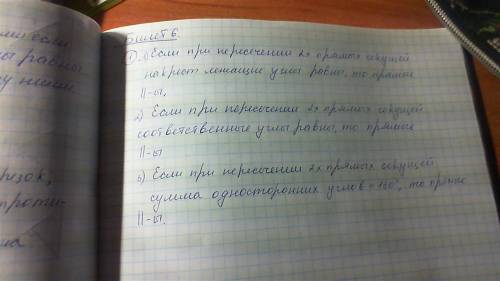 Билет 6
ми если
① 1) Если при пересечении 2х прямых секущей
лы равны
накрест лежащие углы равны, то прямые
||-ы.
2) Если при пересечении 2х прямых секущей
соответственные углы равны, то прямые
||-ы
3) Если при пересечении 2х прямых секущей
резок,
сумма односторонних углов = 180°, то прямые
проти-
||-ы.